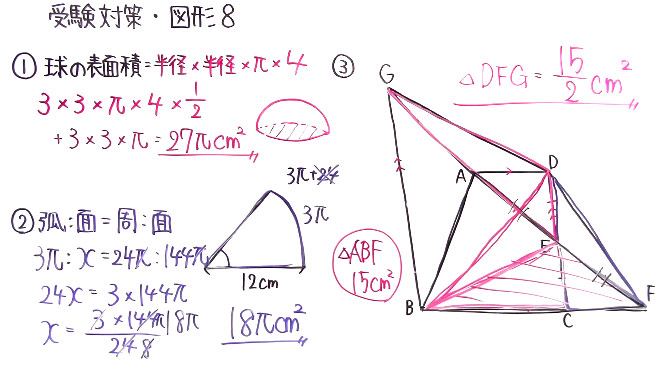 受験対策・図形8
① 球の表面積=半径×半径×π×4
3×3×π×4×1/2
+3×3×π=27πcm²
② 弧:面=周:面
3π:x=24π:144π
24x=3×144π
x=3×144π/24 8 18π
18πcm²
3π+24
3π
12cm
③
△DFG=15/2cm²
G
A
D
E
△ABF
15cm²
B
C
F